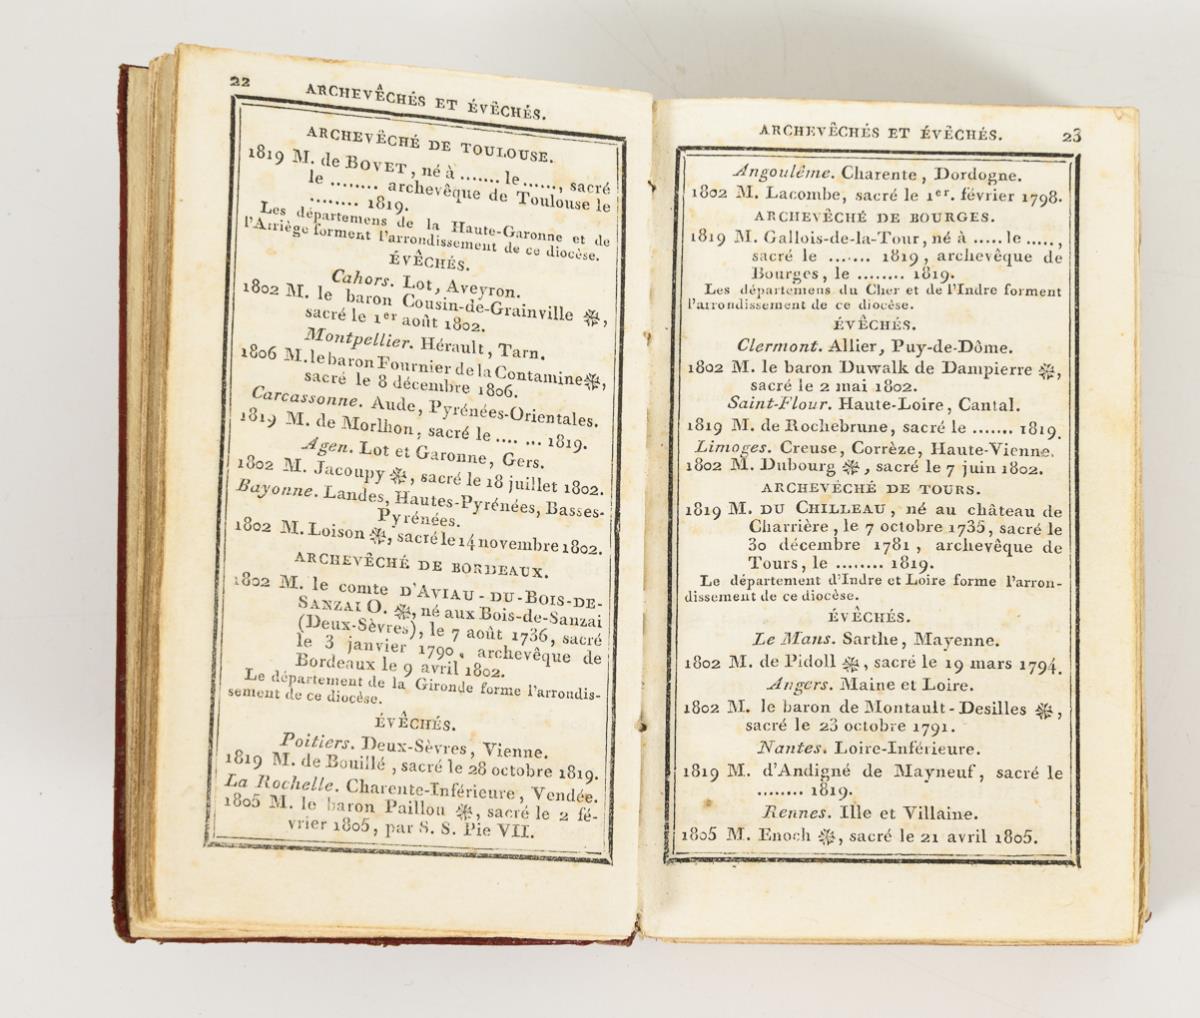 22
ARCHEVÊCHÉS ET ÉVÊCHÉS.
ARCHEVÊCHÉ DE TOULOUSE.
1819 M. de BOVET, né à ....... le ......, sacré
le ........ archevêque de Toulouse le
........ 1819.
Les départemens de la Haute-Garonne et de
l'Arriège forment l'arrondissement de ce diocèse.
ÉVÊCHÉS.
Cahors. Lot, Aveyron.
1802 M. le baron Cousin-de-Grainville ❉,
sacré le 1er août 1802.
Montpellier. Hérault, Tarn.
1806 M. le baron Fournier de la Contamine ❉,
sacré le 8 décembre 1806.
Carcassonne. Aude, Pyrénées-Orientales.
1819 M. de Morlhon, sacré le .... ... 1819.
Agen. Lot et Garonne, Gers.
1802 M. Jacoupy ❉, sacré le 18 juillet 1802.
Bayonne. Landes, Hautes-Pyrénées, Basses-
Pyrénées.
1802 M. Loison ❉, sacré le 14 novembre 1802.
ARCHEVÊCHÉ DE BORDEAUX.
1802 M. le comte D'AVIAU-DU-BOIS-DE-
SANZAI O. ❉, né aux Bois-de-Sanzai
(Deux-Sèvres), le 7 août 1736, sacré
le 3 janvier 1790, archevêque de
Bordeaux le 9 avril 1802.
Le département de la Gironde forme l'arrondis-
sement de ce diocèse.
ÉVÊCHÉS.
Poitiers. Deux-Sèvres, Vienne.
1819 M. de Bouillé, sacré le 28 octobre 1819.
La Rochelle. Charente-Inférieure, Vendée.
1805 M. le baron Paillou ❉, sacré le 2 fé-
vrier 1805, par S. S. Pie VII.
ARCHEVÊCHÉS ET ÉVÊCHÉS. 23
Angoulême. Charente, Dordogne.
1802 M. Lacombe, sacré le 1er. février 1798.
ARCHEVÊCHÉ DE BOURGES.
1819 M. Gallois-de-la-Tour, né à ..... le .....,
sacré le ....... 1819, archevêque de
Bourges, le ........ 1819.
Les départemens du Cher et de l'Indre forment
l'arrondissement de ce diocèse.
ÉVÊCHÉS.
Clermont. Allier, Puy-de-Dôme.
1802 M. le baron Duwalk de Dampierre ❉,
sacré le 2 mai 1802.
Saint-Flour. Haute-Loire, Cantal.
1819 M. de Rochebrune, sacré le ....... 1819.
Limoges. Creuse, Corrèze, Haute-Vienne.
1802 M. Dubourg ❉, sacré le 7 juin 1802.
ARCHEVÊCHÉ DE TOURS.
1819 M. DU CHILLEAU, né au château de
Charrière, le 7 octobre 1735, sacré le
30 décembre 1781, archevêque de
Tours, le ........ 1819.
Le département d'Indre et Loire forme l'arron-
dissement de ce diocèse.
ÉVÊCHÉS.
Le Mans. Sarthe, Mayenne.
1802 M. de Pidoll ❉, sacré le 19 mars 1794.
Angers. Maine et Loire.
1802 M. le baron de Montault-Desilles ❉,
sacré le 23 octobre 1791.
Nantes. Loire-Inférieure.
1819 M. d'Andigné de Mayneuf, sacré le
........ 1819.
Rennes. Ille et Villaine.
1805 M. Enoch ❉, sacré le 21 avril 1805.